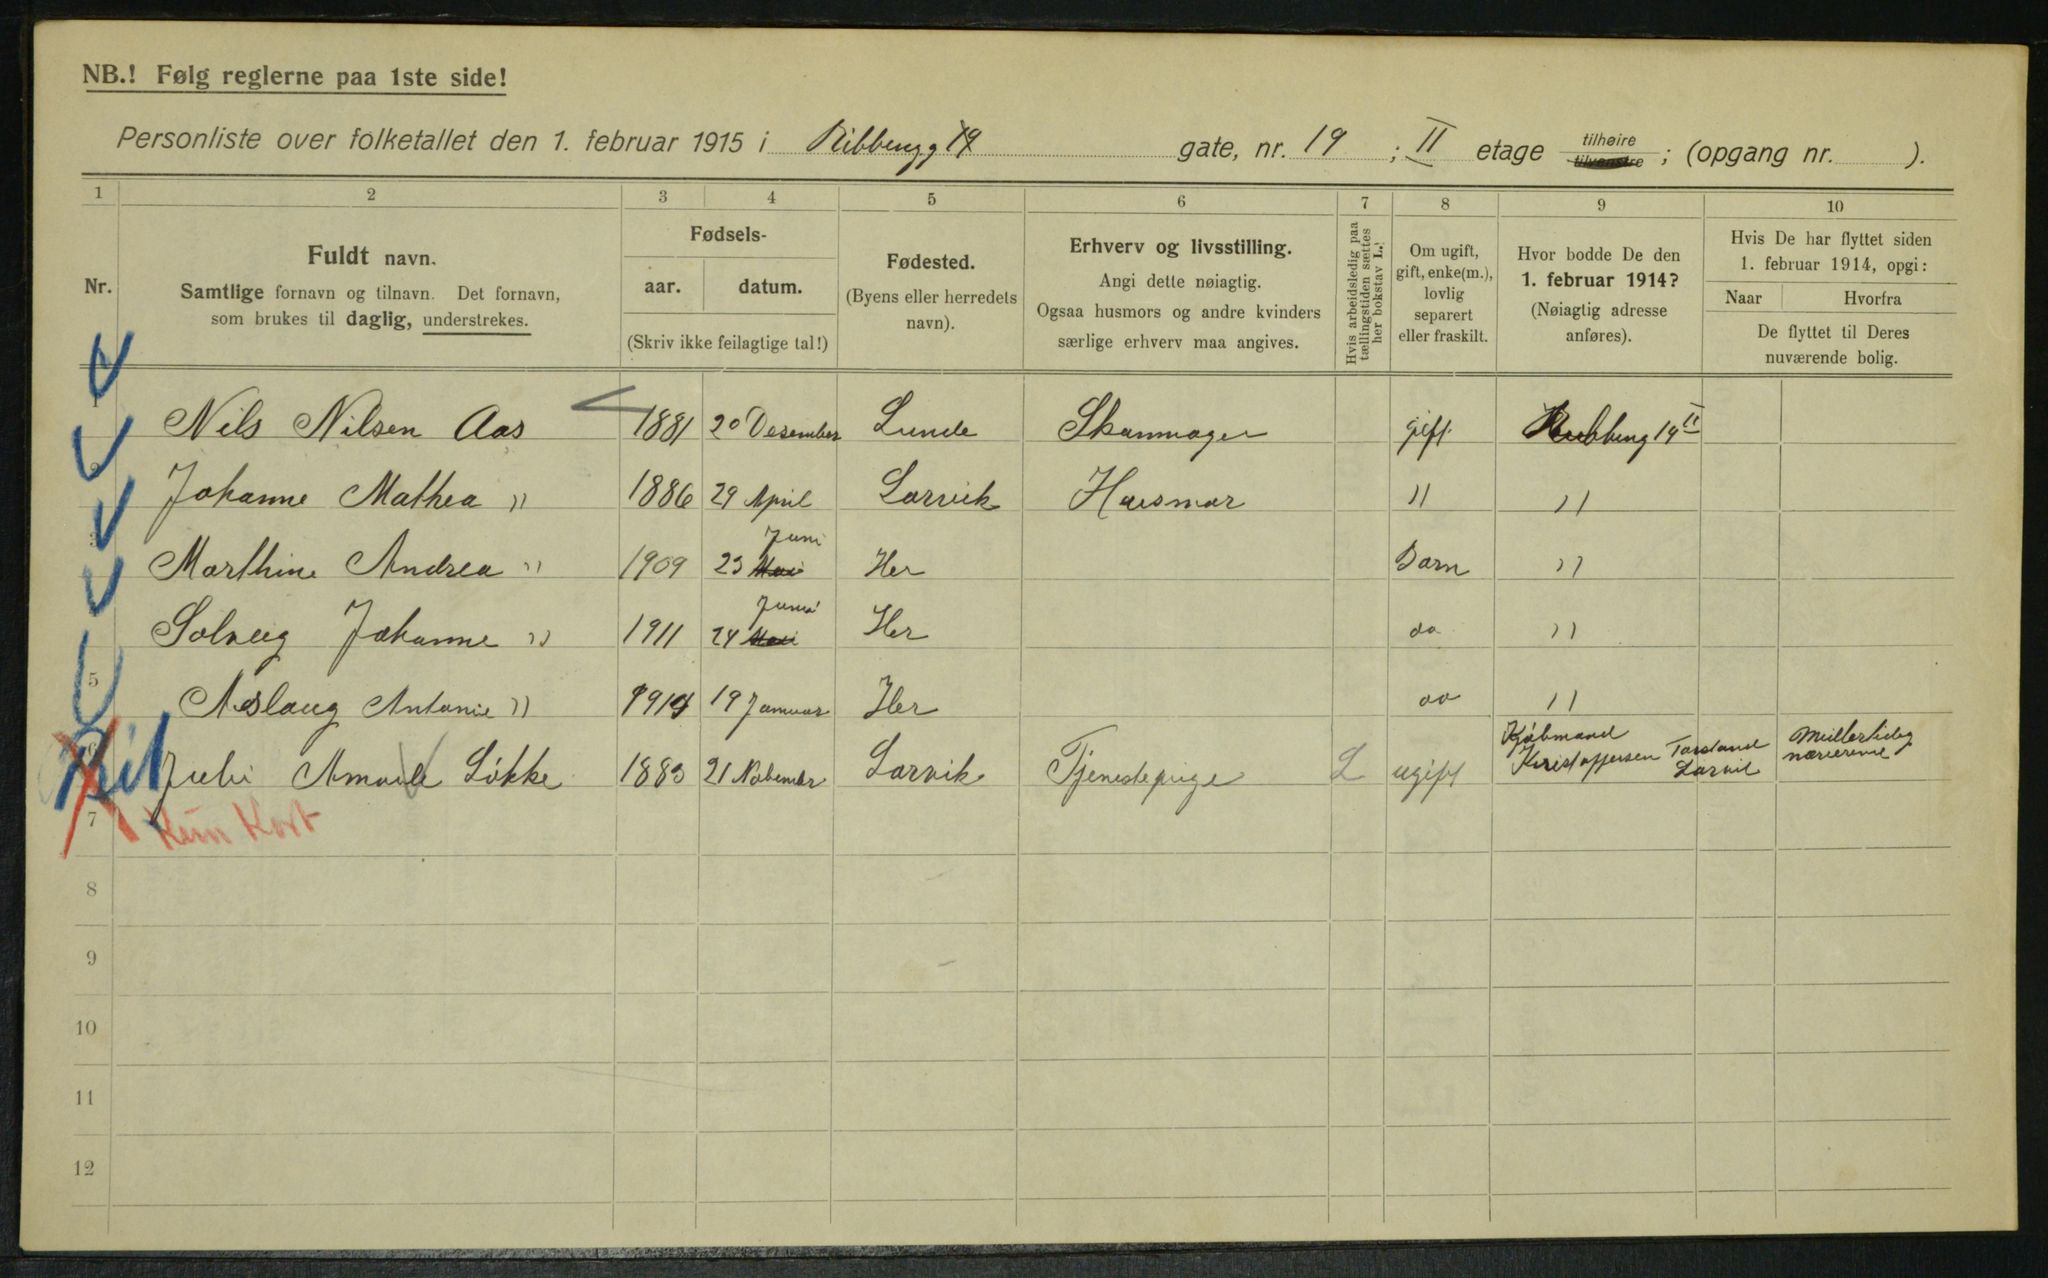 NB.! Følg reglerne paa 1ste side!
Personliste over folketallet den 1. februar 1915 i Ribbergg 19 gate, nr. 19 ; II etage tilhøire tilvenstre ; (opgang nr. ).
1 2 3 4 5 6 7 8 9 10
Nr.
Fuldt navn.
Samtlige fornavn og tilnavn. Det fornavn,
som brukes til daglig, understrekes.
Fødsels-
aar. datum.
(Skriv ikke feilagtige tal!)
Fødested.
(Byens eller herredets
navn).
Erhverv og livsstilling.
Angi dette nøiagtig.
Ogsaa husmors og andre kvinders
særlige erhverv maa angives.
Hvis arbeidsledig paa
tællingstiden sættes
her bokstav L.
Om ugift,
gift, enke(m.),
lovlig
separert
eller fraskilt.
Hvor bodde De den
1. februar 1914?
(Nøiagtig adresse
anføres).
Hvis De har flyttet siden
1. februar 1914, opgi:
Naar Hvorfra
De flyttet til Deres
nuværende bolig.
1 Nils Nilsen Aas 1881 20 Desember Lunde Skonmager gift 19 II
2 Johanne Mathea " 1886 29 April Larvik Husmor " "
3 Marthine Andrea " 1909 23 Mai Juni Her Barn "
Solveig Johanne " 1911 24 Mai Juni Her do "
5 Aslaug Antonie " 1914 19 Januar Her do "
6 Juli Amalie Løkke 1883 21 November Larvik Tjenestepige L ugift Kjøbmand Kristoffersen Torstrand Larvik
7 Kun Kort
8
9
10
11
12